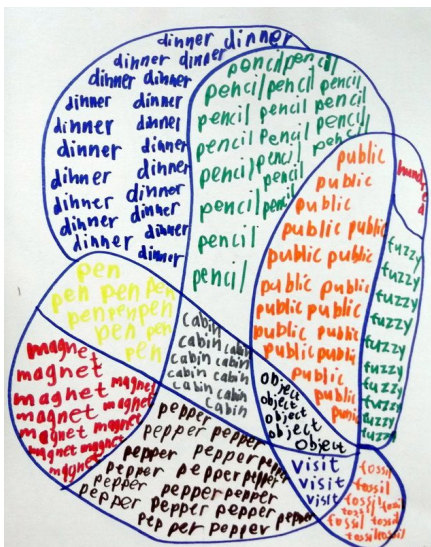 dinner dinner
dinner dinner
dinner dinner
dinner dinner
dinner dinner
dinner dinner
dinner dinner
dinner dinner
dinner dinner
dinner dinner
dinner
pencil pencil
pencil pencil pencil
pencil pencil pencil
pencil pencil pencil
pencil pencil
pencil
pencil pencil
pencil
pencil
public
public
public
public public
public public
public public
public public
public public
public public
public
public
hundred
fuzzy
fuzzy
fuzzy
fuzzy
fuzzy
fuzzy
fuzzy
fuzzy
fuzzy
pen
pen pen pen
pen pen pen
pen pen
pen
cabin
cabin cabin
cabin cabin
cabin cabin
cabin cabin
cabin
magnet
magnet
magnet magnet
magnet magnet
magnet magnet
magnet magnet
magnet
object
object
object
object
object
pepper
pepper pepper
pepper pepper pepper
pepper pepper pepper
pepper pepper
pepper pepper
pepper pepper pepper
visit
visit
visit
fossil
fossil
fossil fossil
fossil fossil
fossil fossil
fossil fossil